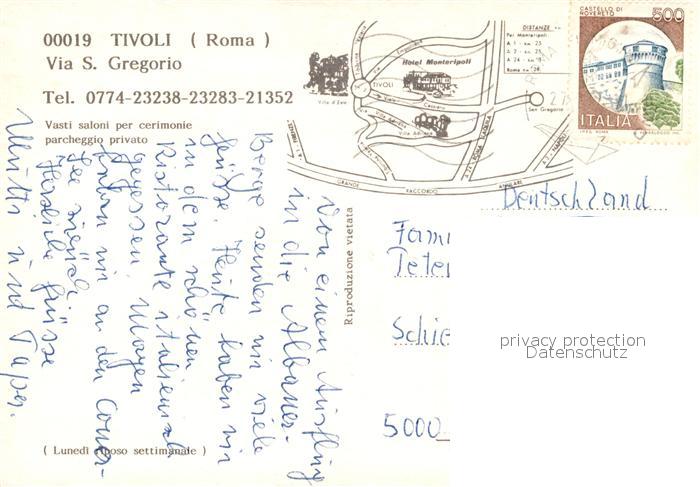 00019 TIVOLI ( Roma )
Via S. Gregorio
Tel. 0774-23238-23283-21352
Vasti saloni per cerimonie
parcheggio privato
Hotel Monteripoli
TIVOLI
Villa d'Este
Villa Adriana
San Gregorio
GRANDE RACCORDO ANULARE
DISTANZE
Da Monteripoli:
A. 1 - km. 25
A. 2 - km. 25
Roma
CASTELLO DI
ROVERETO
500
ITALIA
Von einem Ausflug
in die Albaner-
Berge senden wir viele
Grüsse. Heute haben wir
in dem schönen
Ristorante italienisch
gegessen. Morgen
fahren wir an den Comer-
See zurück.
Herzliche Grüsse
Mutti und Papa.
Riproduzione vietata
Deutschland
Fami
Peter
Schie
5000
privacy protection
Datenschutz
( Lunedì riposo settimanale )